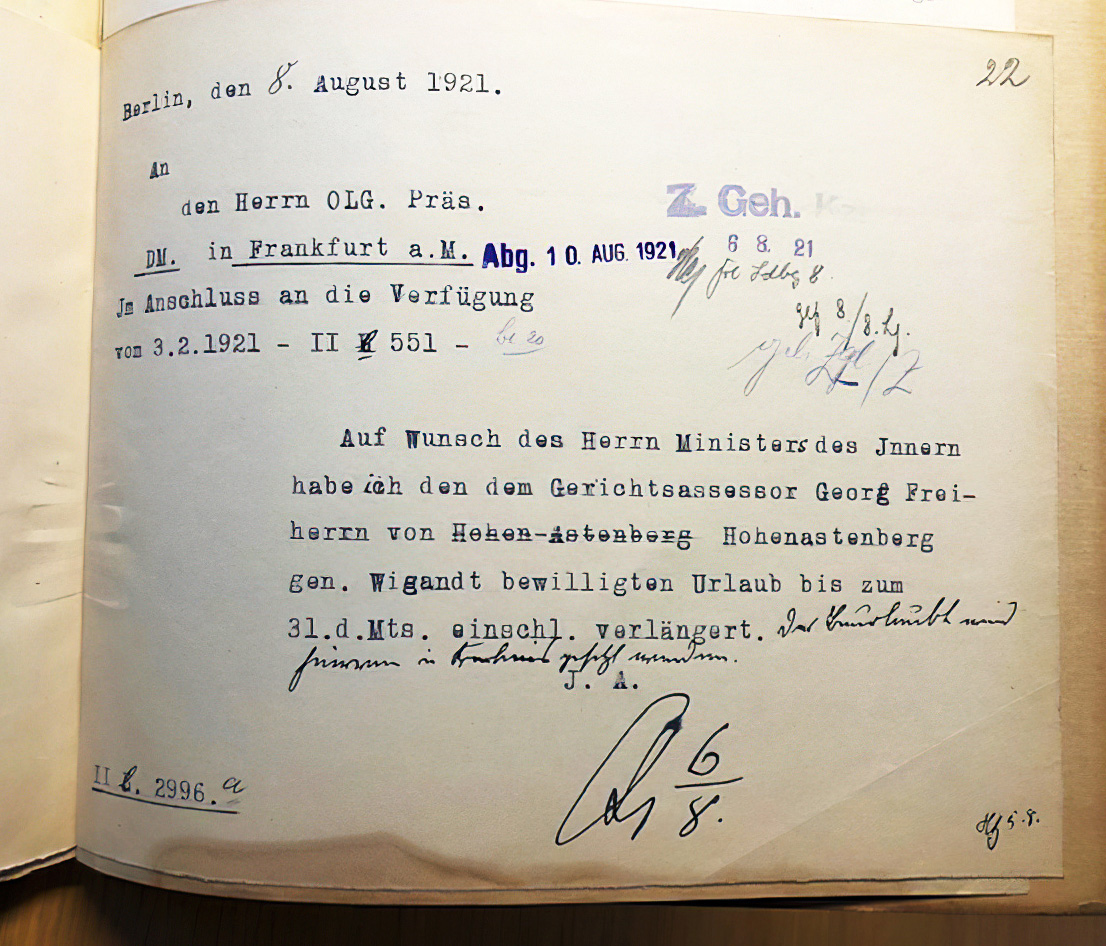 22
Berlin, den 8. August 1921.
An
den Herrn OLG. Präs.
DM. in Frankfurt a.M. Abg. 10. AUG. 1921
Z. Geh.
6 8. 21
Jm Anschluss an die Verfügung
vom 3.2.1921 - II 551 -
Auf Wunsch des Herrn Ministers des Jnnern
habe ich den dem Gerichtsassessor Georg Frei-
herrn von Hohen-Astenberg Hohenastenberg
gen. Wigandt bewilligten Urlaub bis zum
31.d.Mts. einschl. verlängert. Der Beurlaubte wird
hiervon in Kenntnis gesetzt werden.
J. A.
6
8.
II 2996. a
5.8.